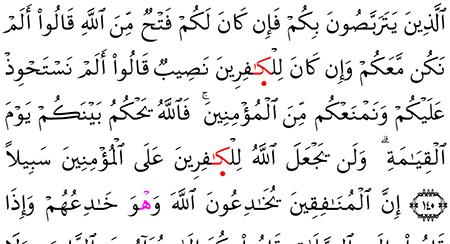 ٱلَّذِينَ يَتَرَبَّصُونَ بِكُمْ فَإِن كَانَ لَكُمْ فَتْحٌ مِّنَ ٱللَّهِ قَالُوا۟ أَلَمْ
نَكُن مَّعَكُمْ وَإِن كَانَ لِلْكَٰفِرِينَ نَصِيبٌ قَالُوا۟ أَلَمْ نَسْتَحْوِذْ
عَلَيْكُمْ وَنَمْنَعْكُم مِّنَ ٱلْمُؤْمِنِينَ ۚ فَٱللَّهُ يَحْكُمُ بَيْنَكُمْ يَوْمَ
ٱلْقِيَٰمَةِ ۗ وَلَن يَجْعَلَ ٱللَّهُ لِلْكَٰفِرِينَ عَلَى ٱلْمُؤْمِنِينَ سَبِيلًا
١٤٠ إِنَّ ٱلْمُنَٰفِقِينَ يُخَٰدِعُونَ ٱللَّهَ وَهْوَ خَٰدِعُهُمْ وَإِذَا